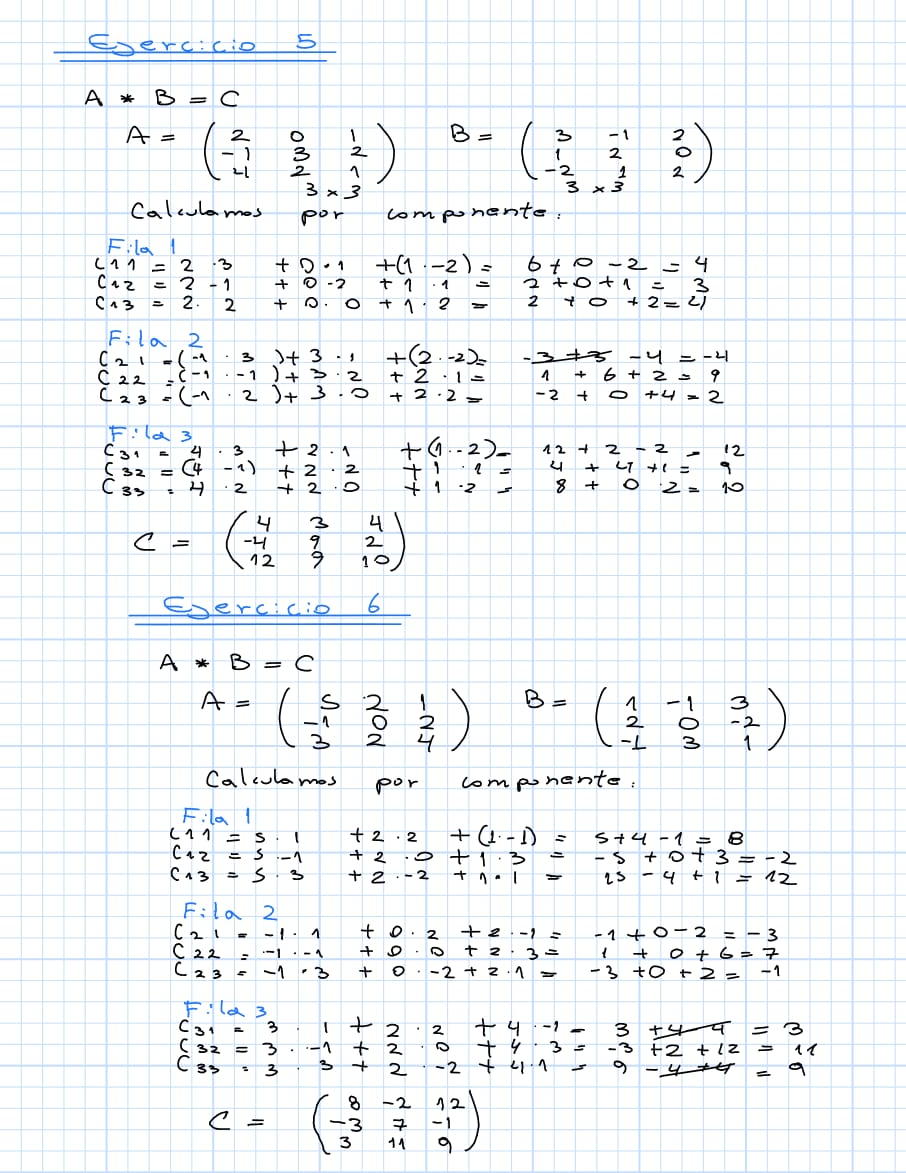 Ejercicio 5
A * B = C
A = ( 2 0 1 ) B = ( 3 -1 2 )
-1 3 2 1 2 0
4 2 1 -2 1 2
3 x 3 3 x 3
Calculamos por componente:
Fila 1
C11 = 2 · 3 + 0 · 1 + (1 · -2) = 6 + 0 - 2 = 4
C12 = 2 - 1 + 0 · 2 + 1 · 1 = 2 + 0 + 1 = 3
C13 = 2 · 2 + 0 · 0 + 1 · 2 = 2 + 0 + 2 = 4
Fila 2
C21 = (-1 · 3) + 3 · 1 + (2 · -2) = -3 + 3 - 4 = -4
C22 = (-1 · -1) + 3 · 2 + 2 · 1 = 1 + 6 + 2 = 9
C23 = (-1 · 2) + 3 · 0 + 2 · 2 = -2 + 0 + 4 = 2
Fila 3
C31 = 4 · 3 + 2 · 1 + (1 · -2) = 12 + 2 - 2 = 12
C32 = (4 -1) + 2 · 2 + 1 · 1 = 4 + 4 + 1 = 9
C33 = 4 · 2 + 2 · 0 + 1 · 2 = 8 + 0 · 2 = 10
C = ( 4 3 4 )
-4 9 2
12 9 10
Ejercicio 6
A * B = C
A = ( 5 2 1 ) B = ( 1 -1 3 )
-1 0 2 2 0 -2
3 2 4 -1 3 1
Calculamos por componente:
Fila 1
C11 = 5 · 1 + 2 · 2 + (1 · -1) = 5 + 4 - 1 = 8
C12 = 5 · -1 + 2 · 0 + 1 · 3 = -5 + 0 + 3 = -2
C13 = 5 · 3 + 2 · -2 + 1 · 1 = 15 - 4 + 1 = 12
Fila 2
C21 = -1 · 1 + 0 · 2 + 2 · -1 = -1 + 0 - 2 = -3
C22 = -1 · -1 + 0 · 0 + 2 · 3 = 1 + 0 + 6 = 7
C23 = -1 · 3 + 0 · -2 + 2 · 1 = -3 + 0 + 2 = -1
Fila 3
C31 = 3 · 1 + 2 · 2 + 4 · -1 = 3 + 4 - 4 = 3
C32 = 3 · -1 + 2 · 0 + 4 · 3 = -3 + 2 + 12 = 11
C33 = 3 · 3 + 2 · -2 + 4 · 1 = 9 - 4 + 4 = 9
C = ( 8 -2 12 )
-3 7 -1
3 11 9